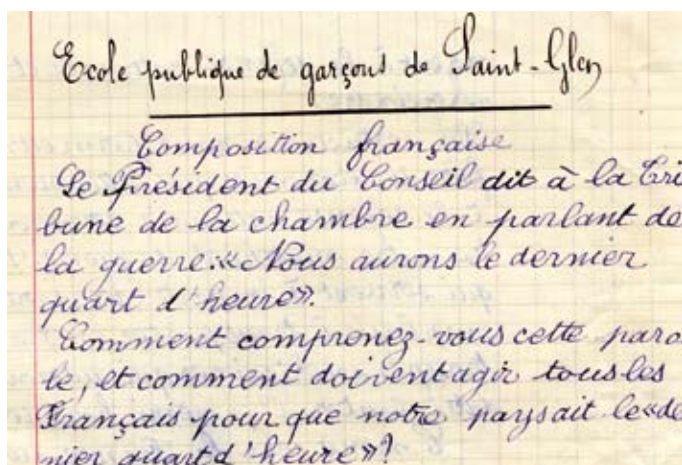 Ecole publique de garçons de Saint-Glen
Composition française
Le Président du Conseil dit à la Tri
bune de la chambre en parlant de
la guerre: «Nous aurons le dernier
quart d'heure».
Comment comprenez-vous cette paro
le, et comment doivent agir tous les
Français pour que notre pays ait le «de
nier quart d'heure»?